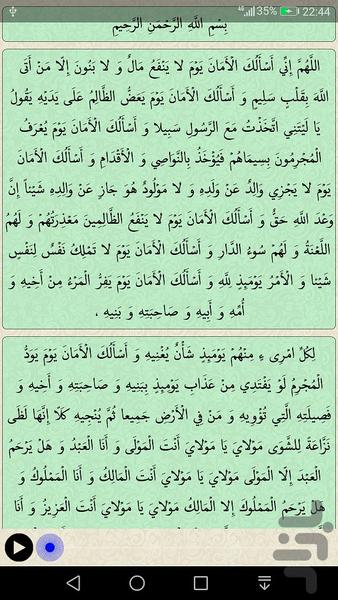 4G 35% 22:44
بِسْمِ اللَّهِ الرَّحْمَنِ الرَّحِيمِ
اللَّهُمَّ إِنِّي أَسْأَلُكَ الْأَمَانَ يَوْمَ لَا يَنْفَعُ مَالٌ وَ لَا بَنُونَ إِلَّا مَنْ أَتَى
اللَّهَ بِقَلْبٍ سَلِيمٍ وَ أَسْأَلُكَ الْأَمَانَ يَوْمَ يَعَضُّ الظَّالِمُ عَلَى يَدَيْهِ يَقُولُ
يَا لَيْتَنِي اتَّخَذْتُ مَعَ الرَّسُولِ سَبِيلا وَ أَسْأَلُكَ الْأَمَانَ يَوْمَ يُعْرَفُ
الْمُجْرِمُونَ بِسِيمَاهُمْ فَيُؤْخَذُ بِالنَّوَاصِي وَ الْأَقْدَامِ وَ أَسْأَلُكَ الْأَمَانَ
يَوْمَ لا يَجْزِي وَالِدٌ عَنْ وَلَدِهِ وَ لا مَوْلُودٌ هُوَ جَازٍ عَنْ وَالِدِهِ شَيْئاً إِنَّ
وَعْدَ اللَّهِ حَقٌّ وَ أَسْأَلُكَ الْأَمَانَ يَوْمَ لا يَنْفَعُ الظَّالِمِينَ مَعْذِرَتُهُمْ وَ لَهُمُ
اللَّعْنَةُ وَ لَهُمْ سُوءُ الدَّارِ وَ أَسْأَلُكَ الْأَمَانَ يَوْمَ لا تَمْلِكُ نَفْسٌ لِنَفْسٍ
شَيْئا وَ الْأَمْرُ يَوْمَئِذٍ لِلَّهِ وَ أَسْأَلُكَ الْأَمَانَ يَوْمَ يَفِرُّ الْمَرْءُ مِنْ أَخِيهِ وَ
أُمِّهِ وَ أَبِيهِ وَ صَاحِبَتِهِ وَ بَنِيهِ ،
لِكُلِّ امْرِی ءٍ مِنْهُمْ يَوْمَئِذٍ شَأْنٌ يُغْنِيهِ وَ أَسْأَلُكَ الْأَمَانَ يَوْمَ يَوَدُّ
الْمُجْرِمُ لَوْ يَفْتَدِي مِنْ عَذَابِ يَوْمِئِذٍ بِبَنِيهِ وَ صَاحِبَتِهِ وَ أَخِيهِ وَ
فَصِيلَتِهِ الَّتِي تُؤْوِيهِ وَ مَنْ فِي الْأَرْضِ جَمِيعا ثُمَّ يُنْجِيهِ كَلّا إِنَّهَا لَظَى
نَزَّاعَةً لِلشَّوَى مَوْلايَ يَا مَوْلايَ أَنْتَ الْمَوْلَى وَ أَنَا الْعَبْدُ وَ هَلْ يَرْحَمُ
الْعَبْدَ إِلّا الْمَوْلَى مَوْلايَ يَا مَوْلايَ أَنْتَ الْمَالِكُ وَ أَنَا الْمَمْلُوكُ وَ
هَلْ يَرْحَمُ الْمَمْلُوكَ إِلا الْمَالِكُ مَوْلايَ يَا مَوْلايَ أَنْتَ الْعَزِيزُ وَ أَنَا